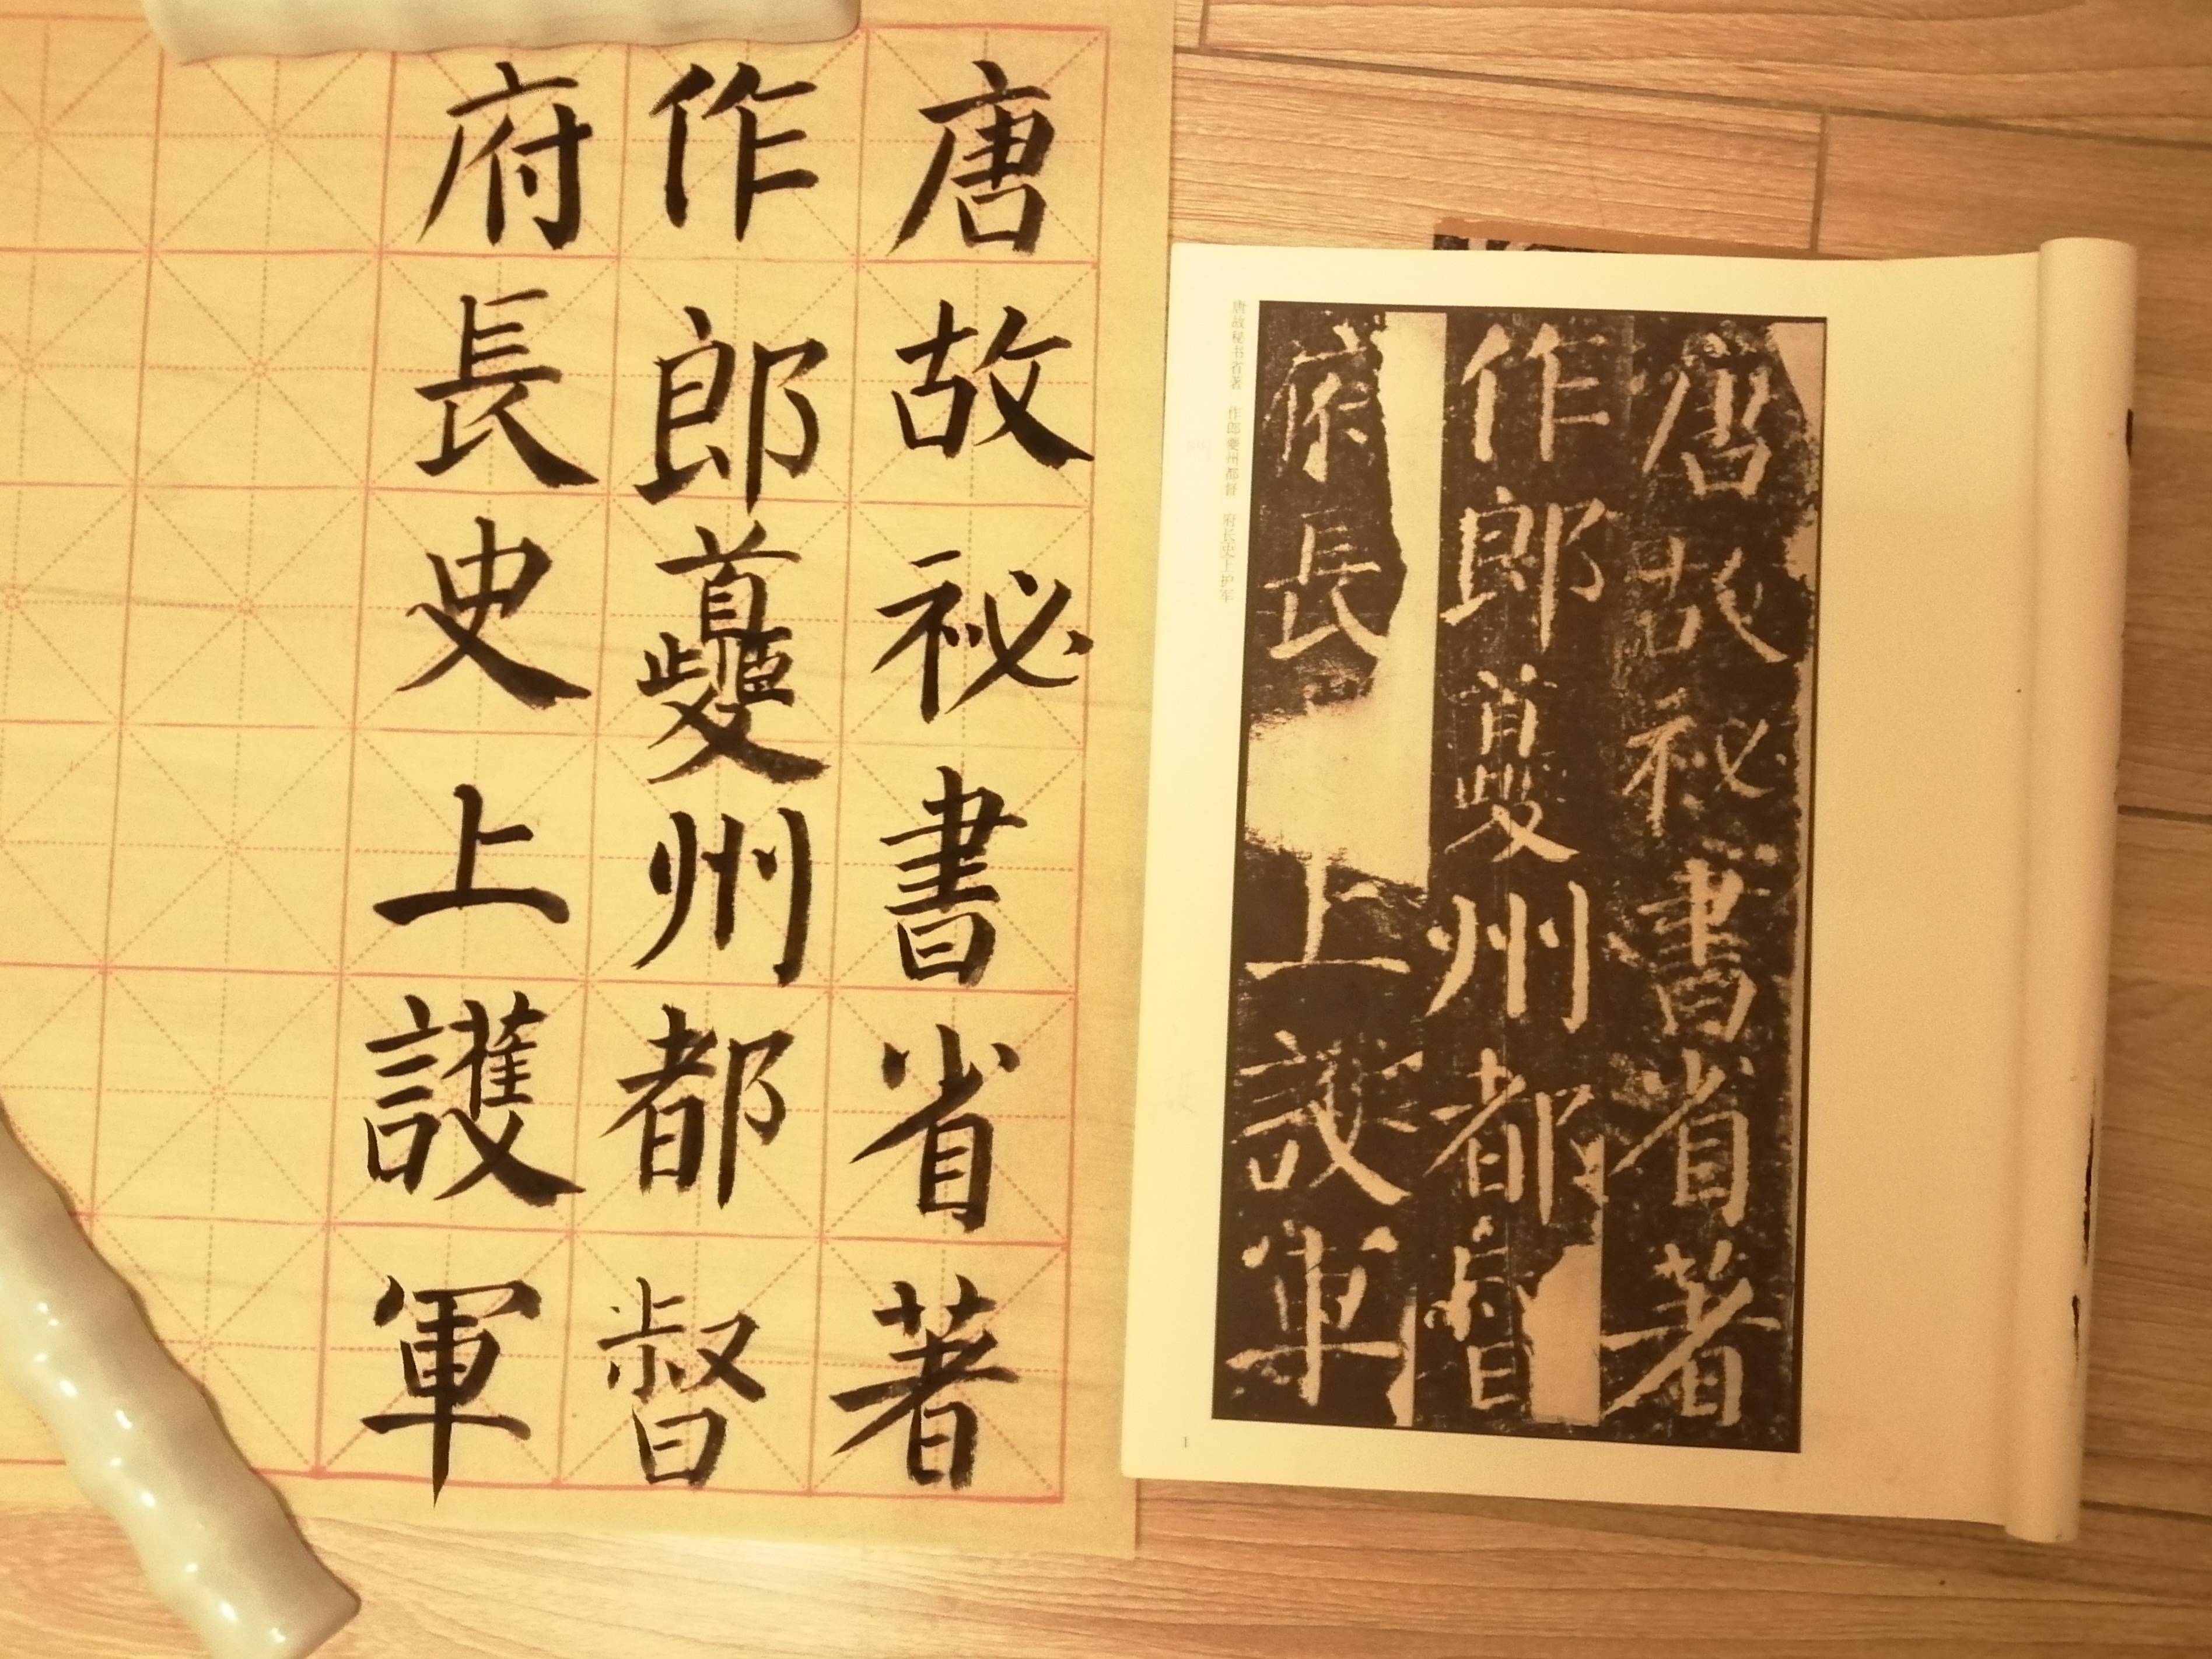 唐故祕書省著
作郎夔州都督
府長史上護軍
唐故祕書省著
作郎夔州都督
府長 上護軍
唐故秘书省著 作郎夔州都督 府长史上护军
1